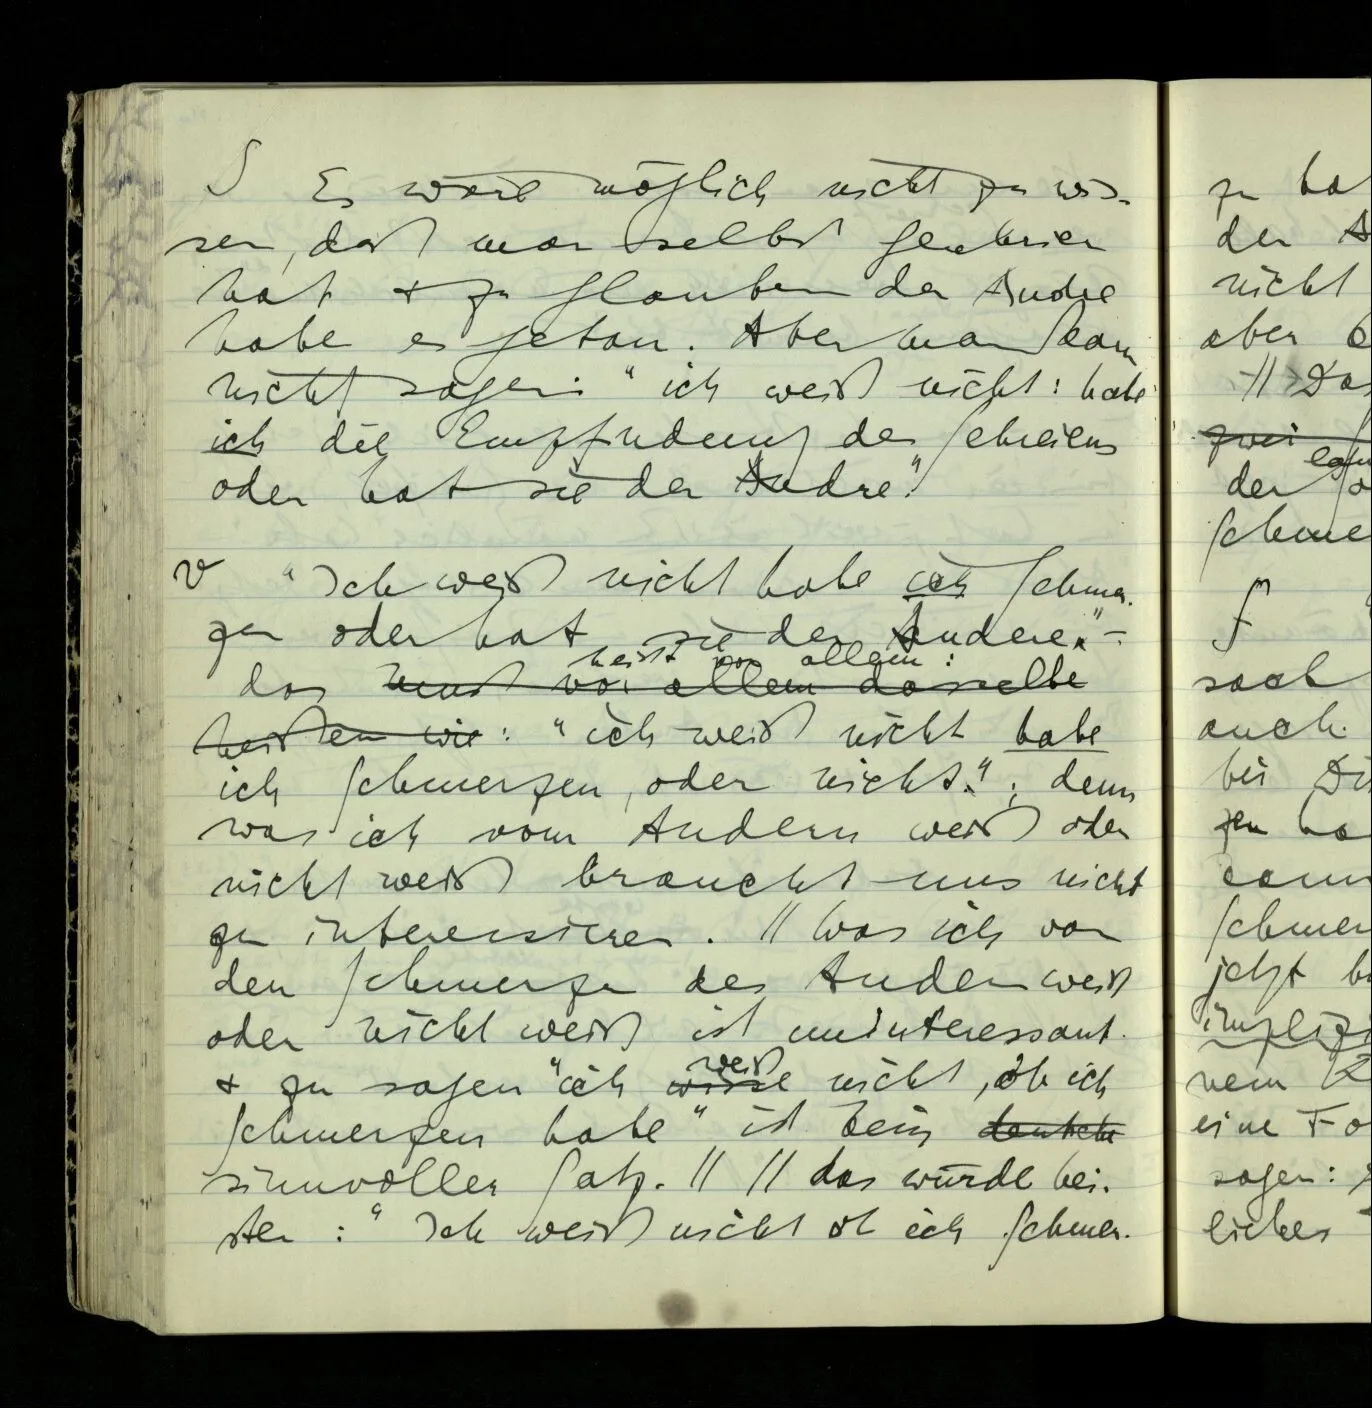 S Es wäre möglich nicht zu wis-
sen, daß man selbst geschrien
hat & zu glauben der Andre
habe es getan. Aber man kann
nicht sagen: "ich weiß nicht: habe
ich die Empfindung des Schreiens
oder hat sie der Andre".
V "Ich weiß nicht habe ich Schmer-
zen oder hat sie der Andere." –
heißt vor allem:
das muß vor allem dasselbe
heißen wie: "ich weiß nicht habe
ich Schmerzen, oder nicht."; denn
was ich vom Andern weiß oder
nicht weiß braucht uns nicht
zu interessieren. || Was ich von
den Schmerzen des Andern weiß
oder nicht weiß ist uninteressant.
weiß
& zu sagen "ich wisse nicht, ob ich
Schmerzen habe" ist kein
sinnvoller Satz. || || das würde hei-
ßen: "Ich weiß nicht ob ich Schmer-
zu
der
nicht
aber
||
zwei
der
f
auch
bei
zen
kann
jetzt
eine
sagen: